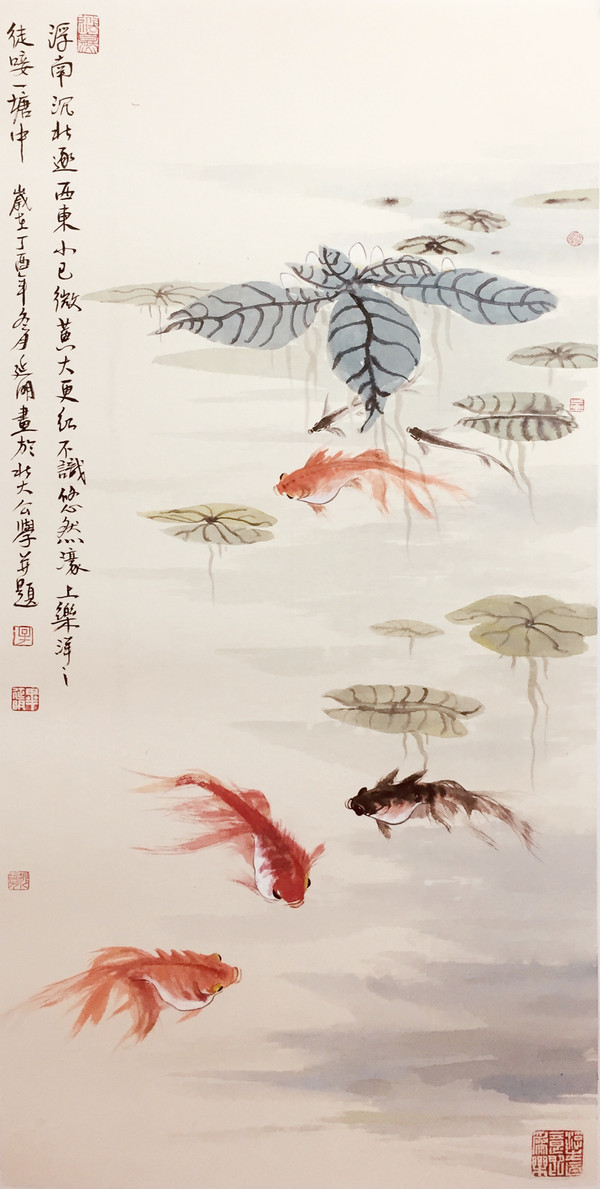 浮南沉北逐西東小已微黃大更紅不識悠然濠上樂洋〻
徒唼一塘中 歲在丁酉年冬月延明畫於北大公學并題